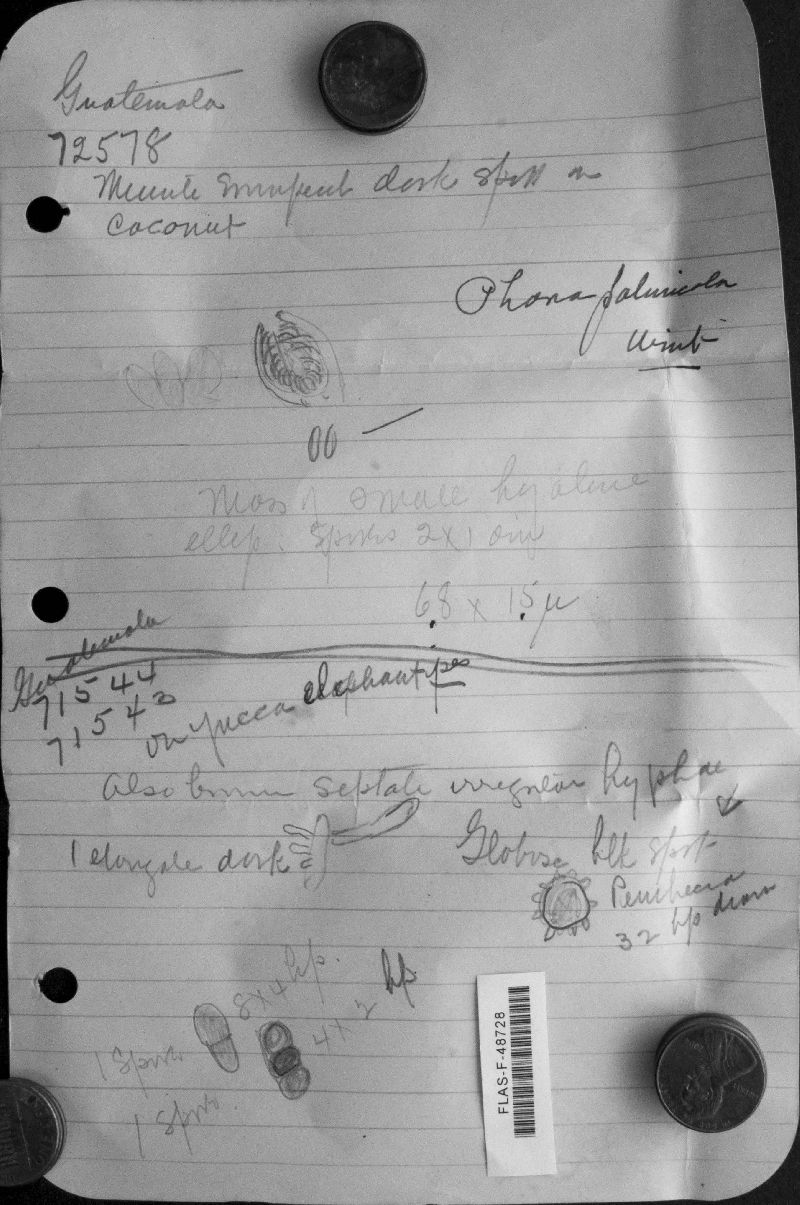 Guatemala
72578
Minute erumpent dark spots on
coconut
Phoma palmicola
Wint
Mass of small hyaline
ellip. spores 2x1 div
68 x 15 µ
Guatemala
71544
71543
on Yucca elephantipes
Also brown septate irregular hyphae
1 elongate dark
Globose blk spot
32 hp diam
8x4 hp.
4x2 hp
1 spore
1 spore
FLAS-F-48728